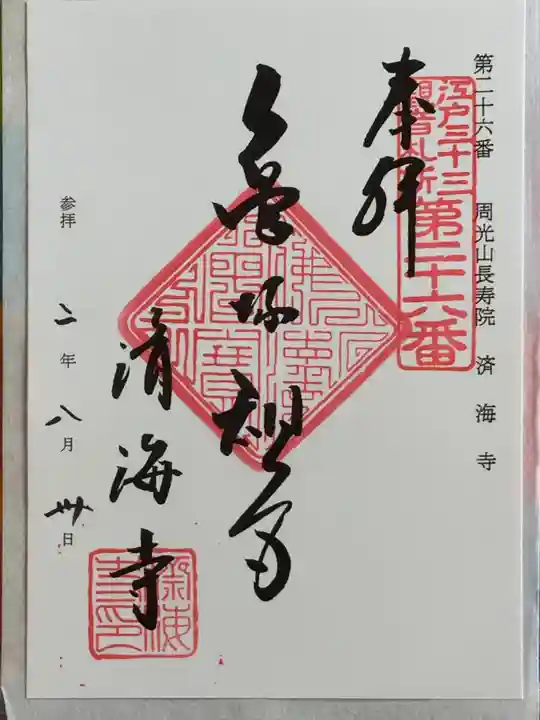 第二十六番 周光山長寿院 済海寺
江戸三十三
観音札所
第二十六番
奉拝
亀塚観音
済海寺
参拝 二年八月卅日